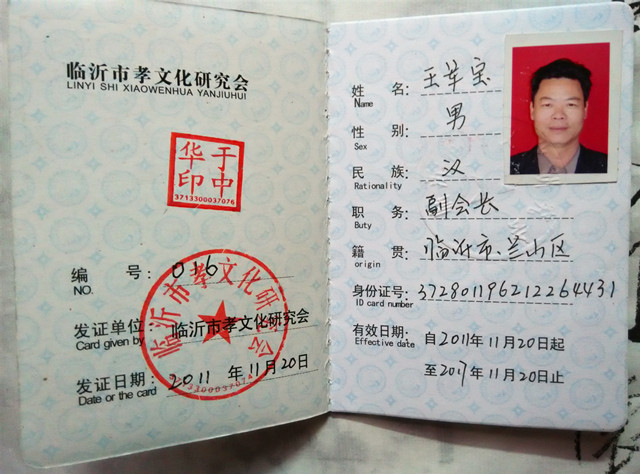 临沂市孝文化研究会
LINYI SHI XIAOWENHUA YANJIUHUI
于中
华印
3713300037076
编 号: 016
NO.
发证单位: 临沂市孝文化研究会
Card given by
发证日期: 2011 年 11月 20日
Date or the card
临沂市孝文化研究会
3713300037074
姓 名: 王举宝
Name
性 别: 男
Sex
民 族: 汉
Rationality
职 务: 副会长
Buty
籍 贯: 临沂市、兰山区
origin
身份证号: 372801196212264431
ID card number
有效日期: 自2011年11月20日起
Effective date
至2017年11月20日止